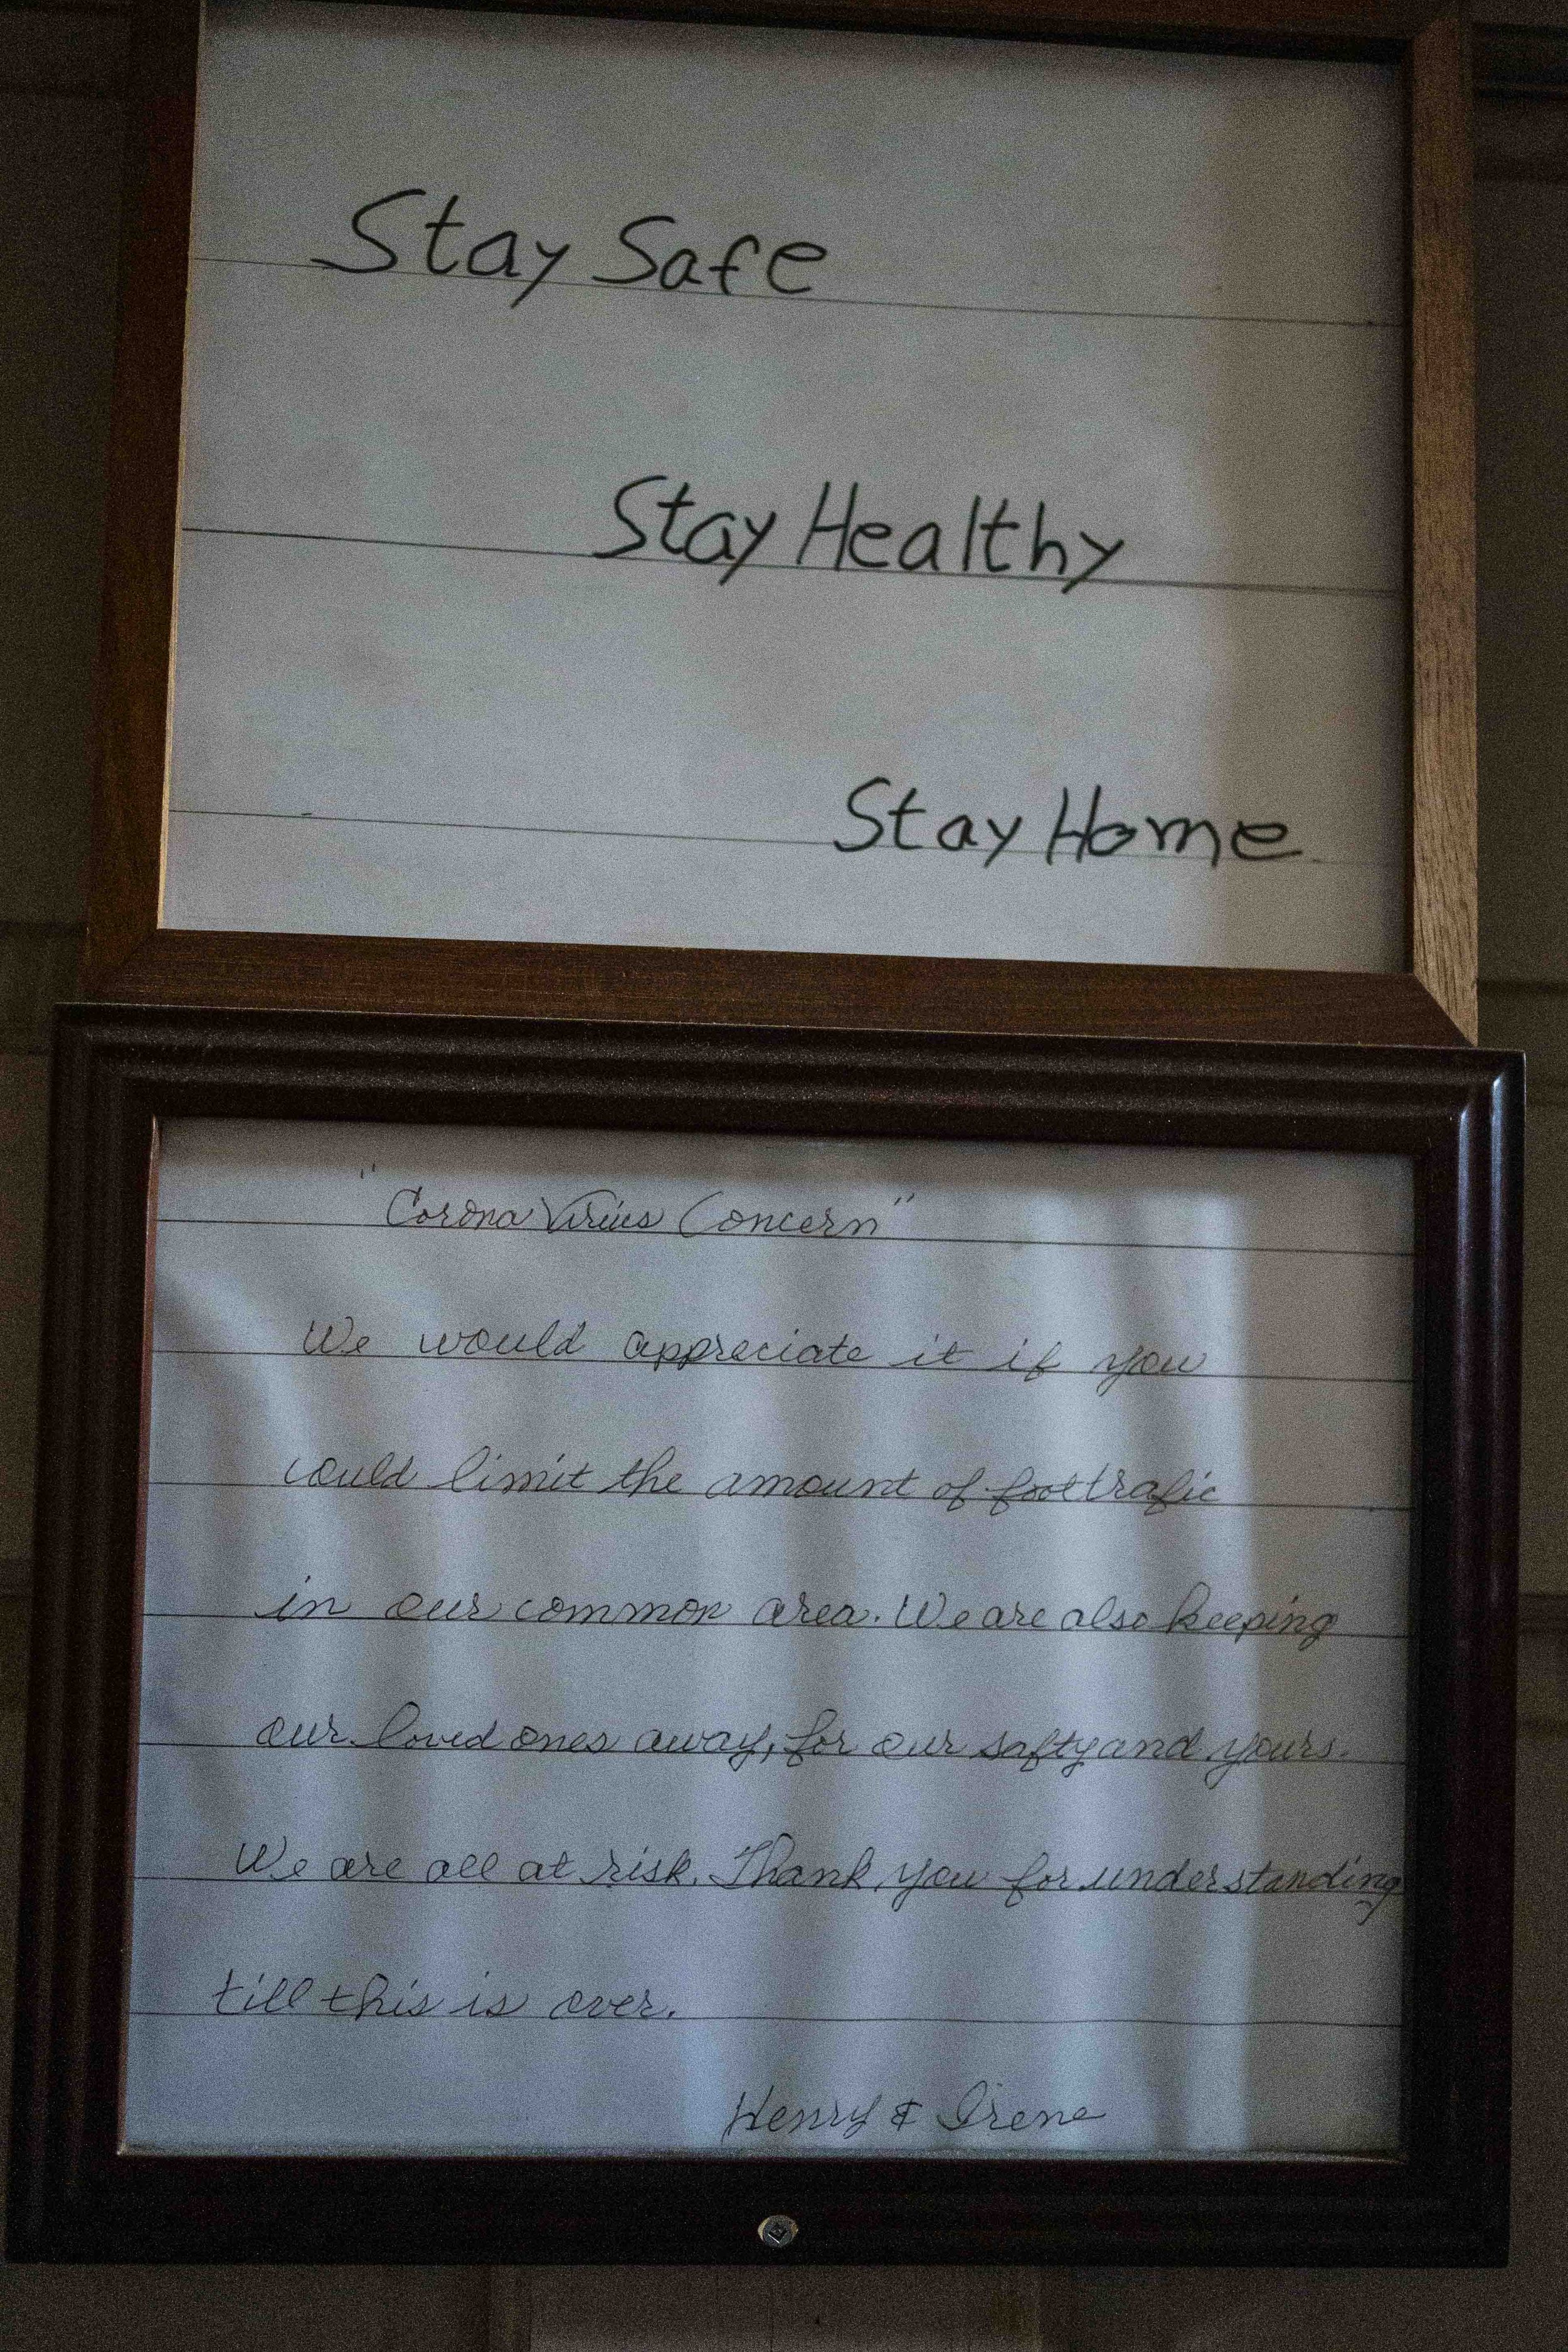 Stay Safe
Stay Healthy
Stay Home
"Corona Virius Concern"
We would appreciate it if you
could limit the amount of foot trafic
in our common area. We are also keeping
our loved ones away, for our safty and yours.
We are all at risk. Thank you for understanding
till this is over.
Henry & Irene